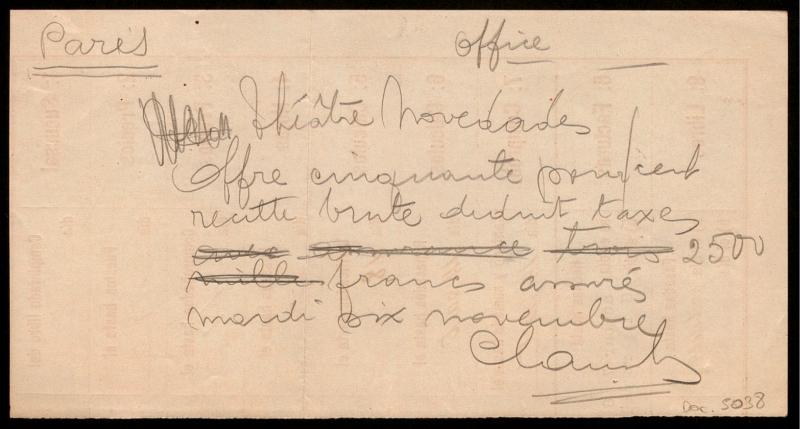 Paris office
Théâtre Novedades
Offre cinquante pour cent
recette brute deduit taxes
avec assurance trois 2500
mille francs assurés
mardi six novembre
Doc. 5038